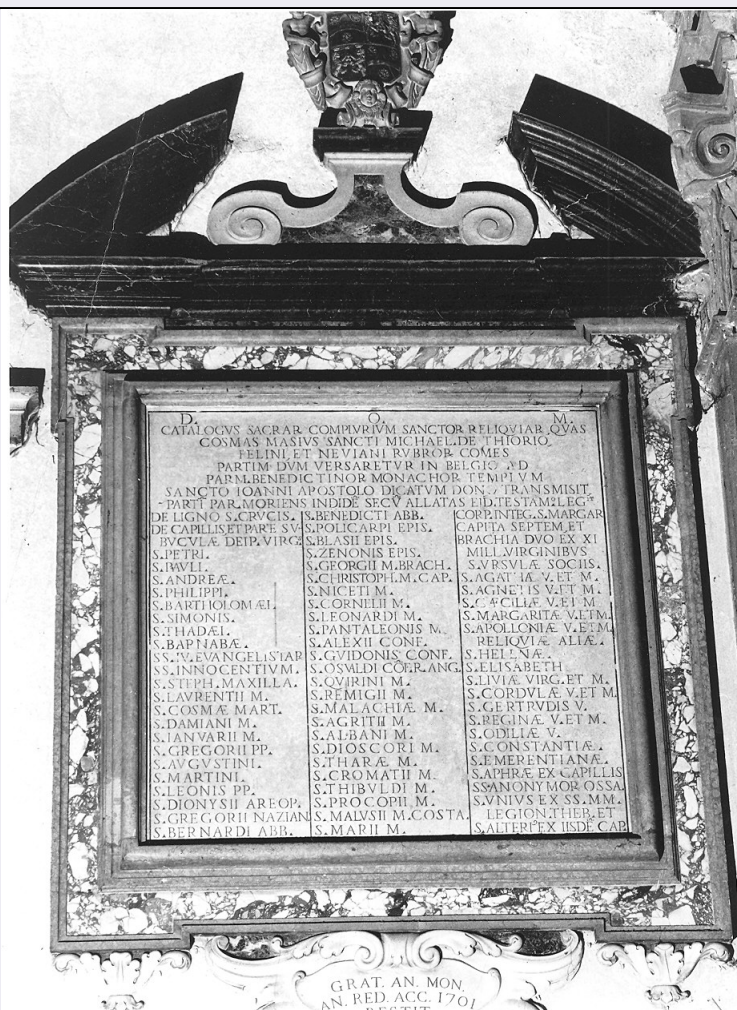 D. O. M.
CATALOGVS SACRAR COMPLVRIVM SANCTOR RELIQVIAR QVAS
COSMAS MASIVS SANCTI MICHAEL. DE THIORIO
FELINI, ET NEVIANI RVBROR COMES
PARTIM DVM VERSARETVR IN BELGIO AD
PARM. BENEDICTINOR MONACHOR TEMPLVM
SANCTO IOANNI APOSTOLO DICATVM DONO TRANSMISIT
PARTI PAR. MORIENS INDIDE SECV ALLATAS EID. TESTAM. LEG
DE LIGNO S. CRVCIS.
DE CAPILLIS ET PARTE SV
BVCVLÆ DEIP. VIRG.
S. PETRI.
S. PAVLI.
S. ANDREÆ.
S. PHILIPPI.
S. BARTHOLOMÆI.
S. SIMONIS.
S. THADÆI.
S. BARNABÆ.
SS. IV. EVANGELISTAR
SS. INNOCENTIVM.
S. STEPH. MAXILLA.
S. LAVRENTII M.
S. COSMÆ MART.
S. DAMIANI M.
S. IANVARII M.
S. GREGORII PP.
S. AVGVSTINI.
S. MARTINI.
S. LEONIS PP.
S. DIONYSII AREOP.
S. GREGORII NAZIAN
S. BERNARDI ABB.
S. BENEDICTI ABB.
S. POLICARPI EPIS.
S. BLASII EPIS.
S. ZENONIS EPIS.
S. GEORGII M. BRACH.
S. CHRISTOPH. M. CAP.
S. NICETI M.
S. CORNELII M.
S. LEONARDI M.
S. PANTALEONIS M.
S. ALEXII CONF.
S. GVIDONIS CONF.
S. OSVALDI CÕF. R. ANG.
S. QVIRINI M.
S. REMIGII M.
S. MALACHIÆ M.
S. AGRITII M.
S. ALBANI M.
S. DIOSCORI M.
S. THARÆ M.
S. CROMATII M.
S. THIBVLDI M.
S. PROCOPII M.
S. MALVSII M. COSTA
S. MARII M.
CORP. INTEG. S. MARGAR
CAPITA SEPTEM, ET
BRACHIA DVO EX XI
MILL. VIRGINIBVS
S. VRSVLÆ SOCIIS.
S. AGATHÆ V. ET M.
S. AGNETIS V. ET M.
S. CÆCILIÆ V. ET M
S. MARGARITÆ V. ET M.
S. APOLLONIÆ V. ET M
RELIQVIÆ ALIÆ.
S. HELENÆ.
S. ELISABETH
S. LIVIÆ VIRG. ET M.
S. CORDVLÆ V. ET M.
S. GERTRVDIS V.
S. REGINÆ V. ET M.
S. ODILIÆ V.
S. CONSTANTIÆ.
S. EMERENTIANÆ.
S. APHRÆ EX CAPILLIS
SS. ANONYMOR OSSA.
S. VNIVS EX SS. MM.
LEGION. THEB. ET
S. ALTERI' EX IISDĒ CAP.
GRAT. AN. MON.
AN. RED. ACC. 1701
RESTIT